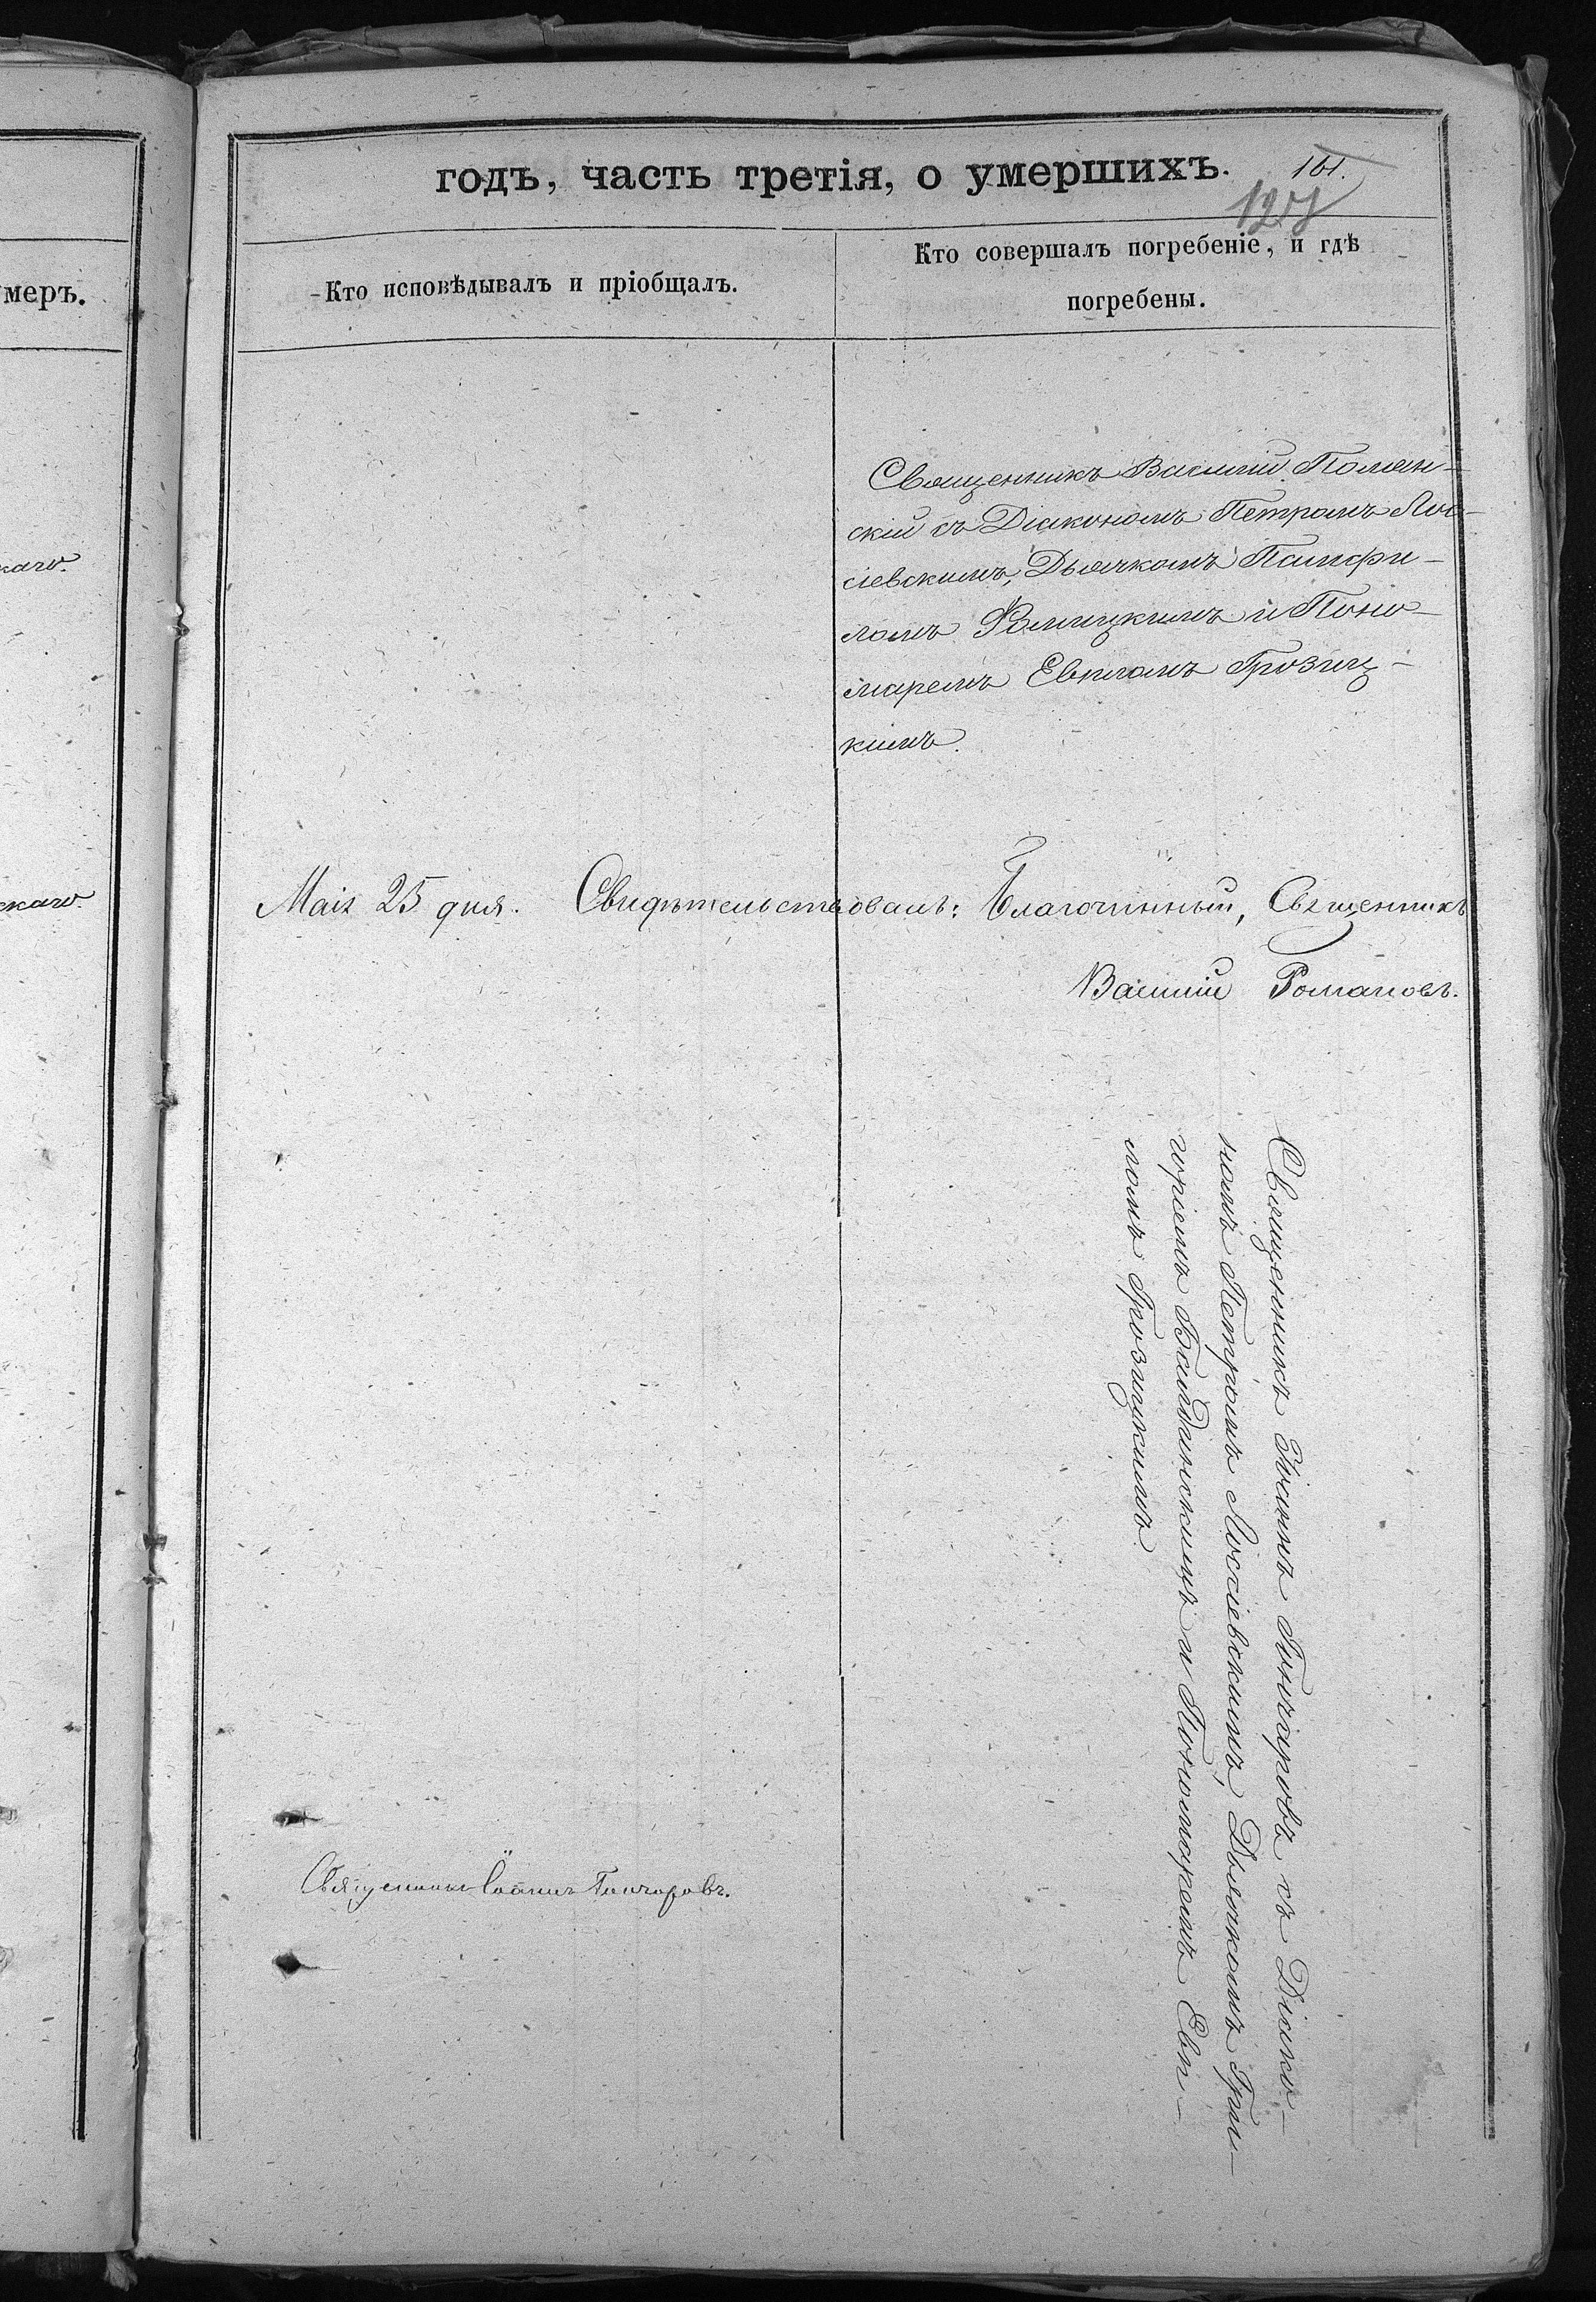 годъ, часть третія, о умершихъ.
161.
127
меръ.
Кто исповѣдывалъ и пріобщалъ.
Кто совершалъ погребеніе, и гдѣ
погребены.
каго.
скаго.
Священникъ Василій Полян-
скій съ Діакономъ Петромъ Лос-
сіевскимъ, Дьячкомъ Памфи-
ломъ Ромицкимъ и Поно-
маремъ Евпломъ Грозиц-
кимъ.
Маія 25 дня. Свидѣтельствовалъ: Благочинный, Священникъ
Василій Романовъ.
Священникъ Іоаннъ Гончаровъ съ Діако-
номъ Петромъ Лоссіевскимъ, Дьячкомъ Гри-
горіемъ и Пономаремъ Евп-
ломъ Грозицкимъ
Священникъ Іоаннъ Гончаровъ.